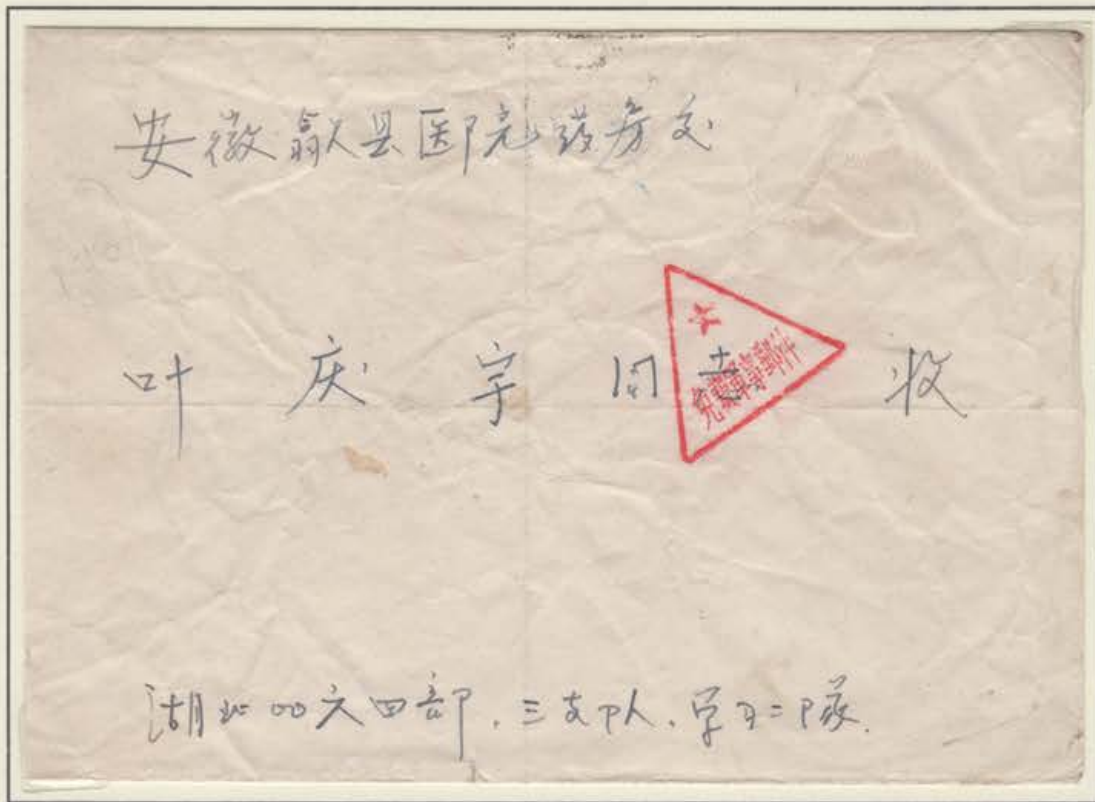 安徽歙县医院药房交
叶庆宇同志收
免費軍事郵件
湖北00六四部.三支队.学习二隊.